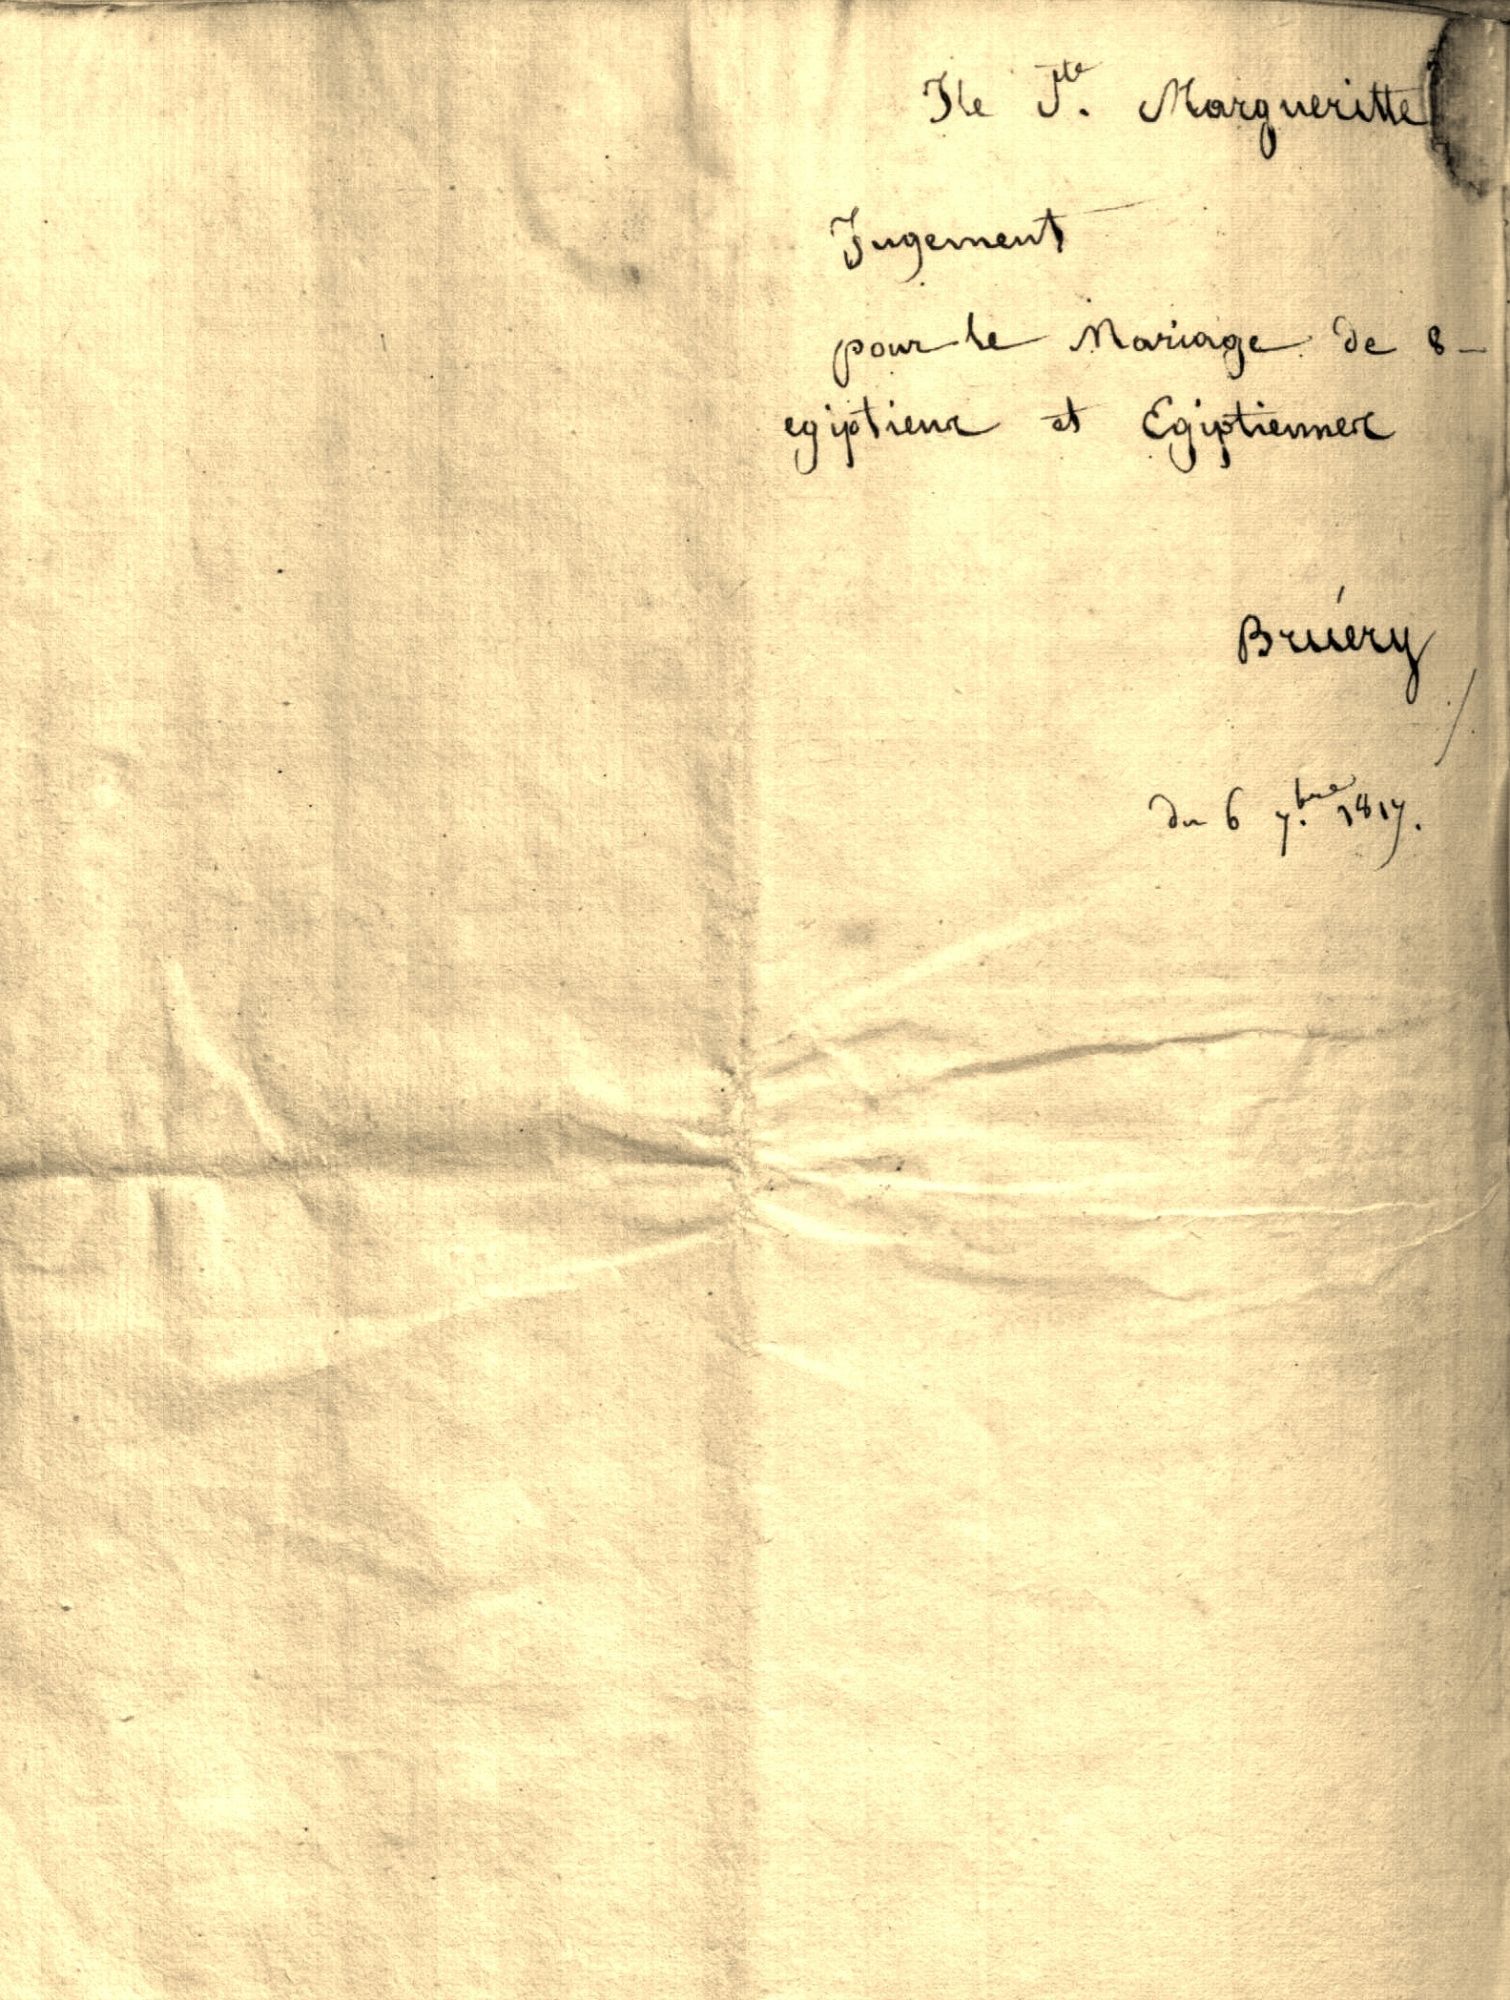 Ile Ste. Margueritte
Jugement
pour le Mariage de 8
egiptiens et Egiptiennes
Bruéry
du 6 7.bre 1817.